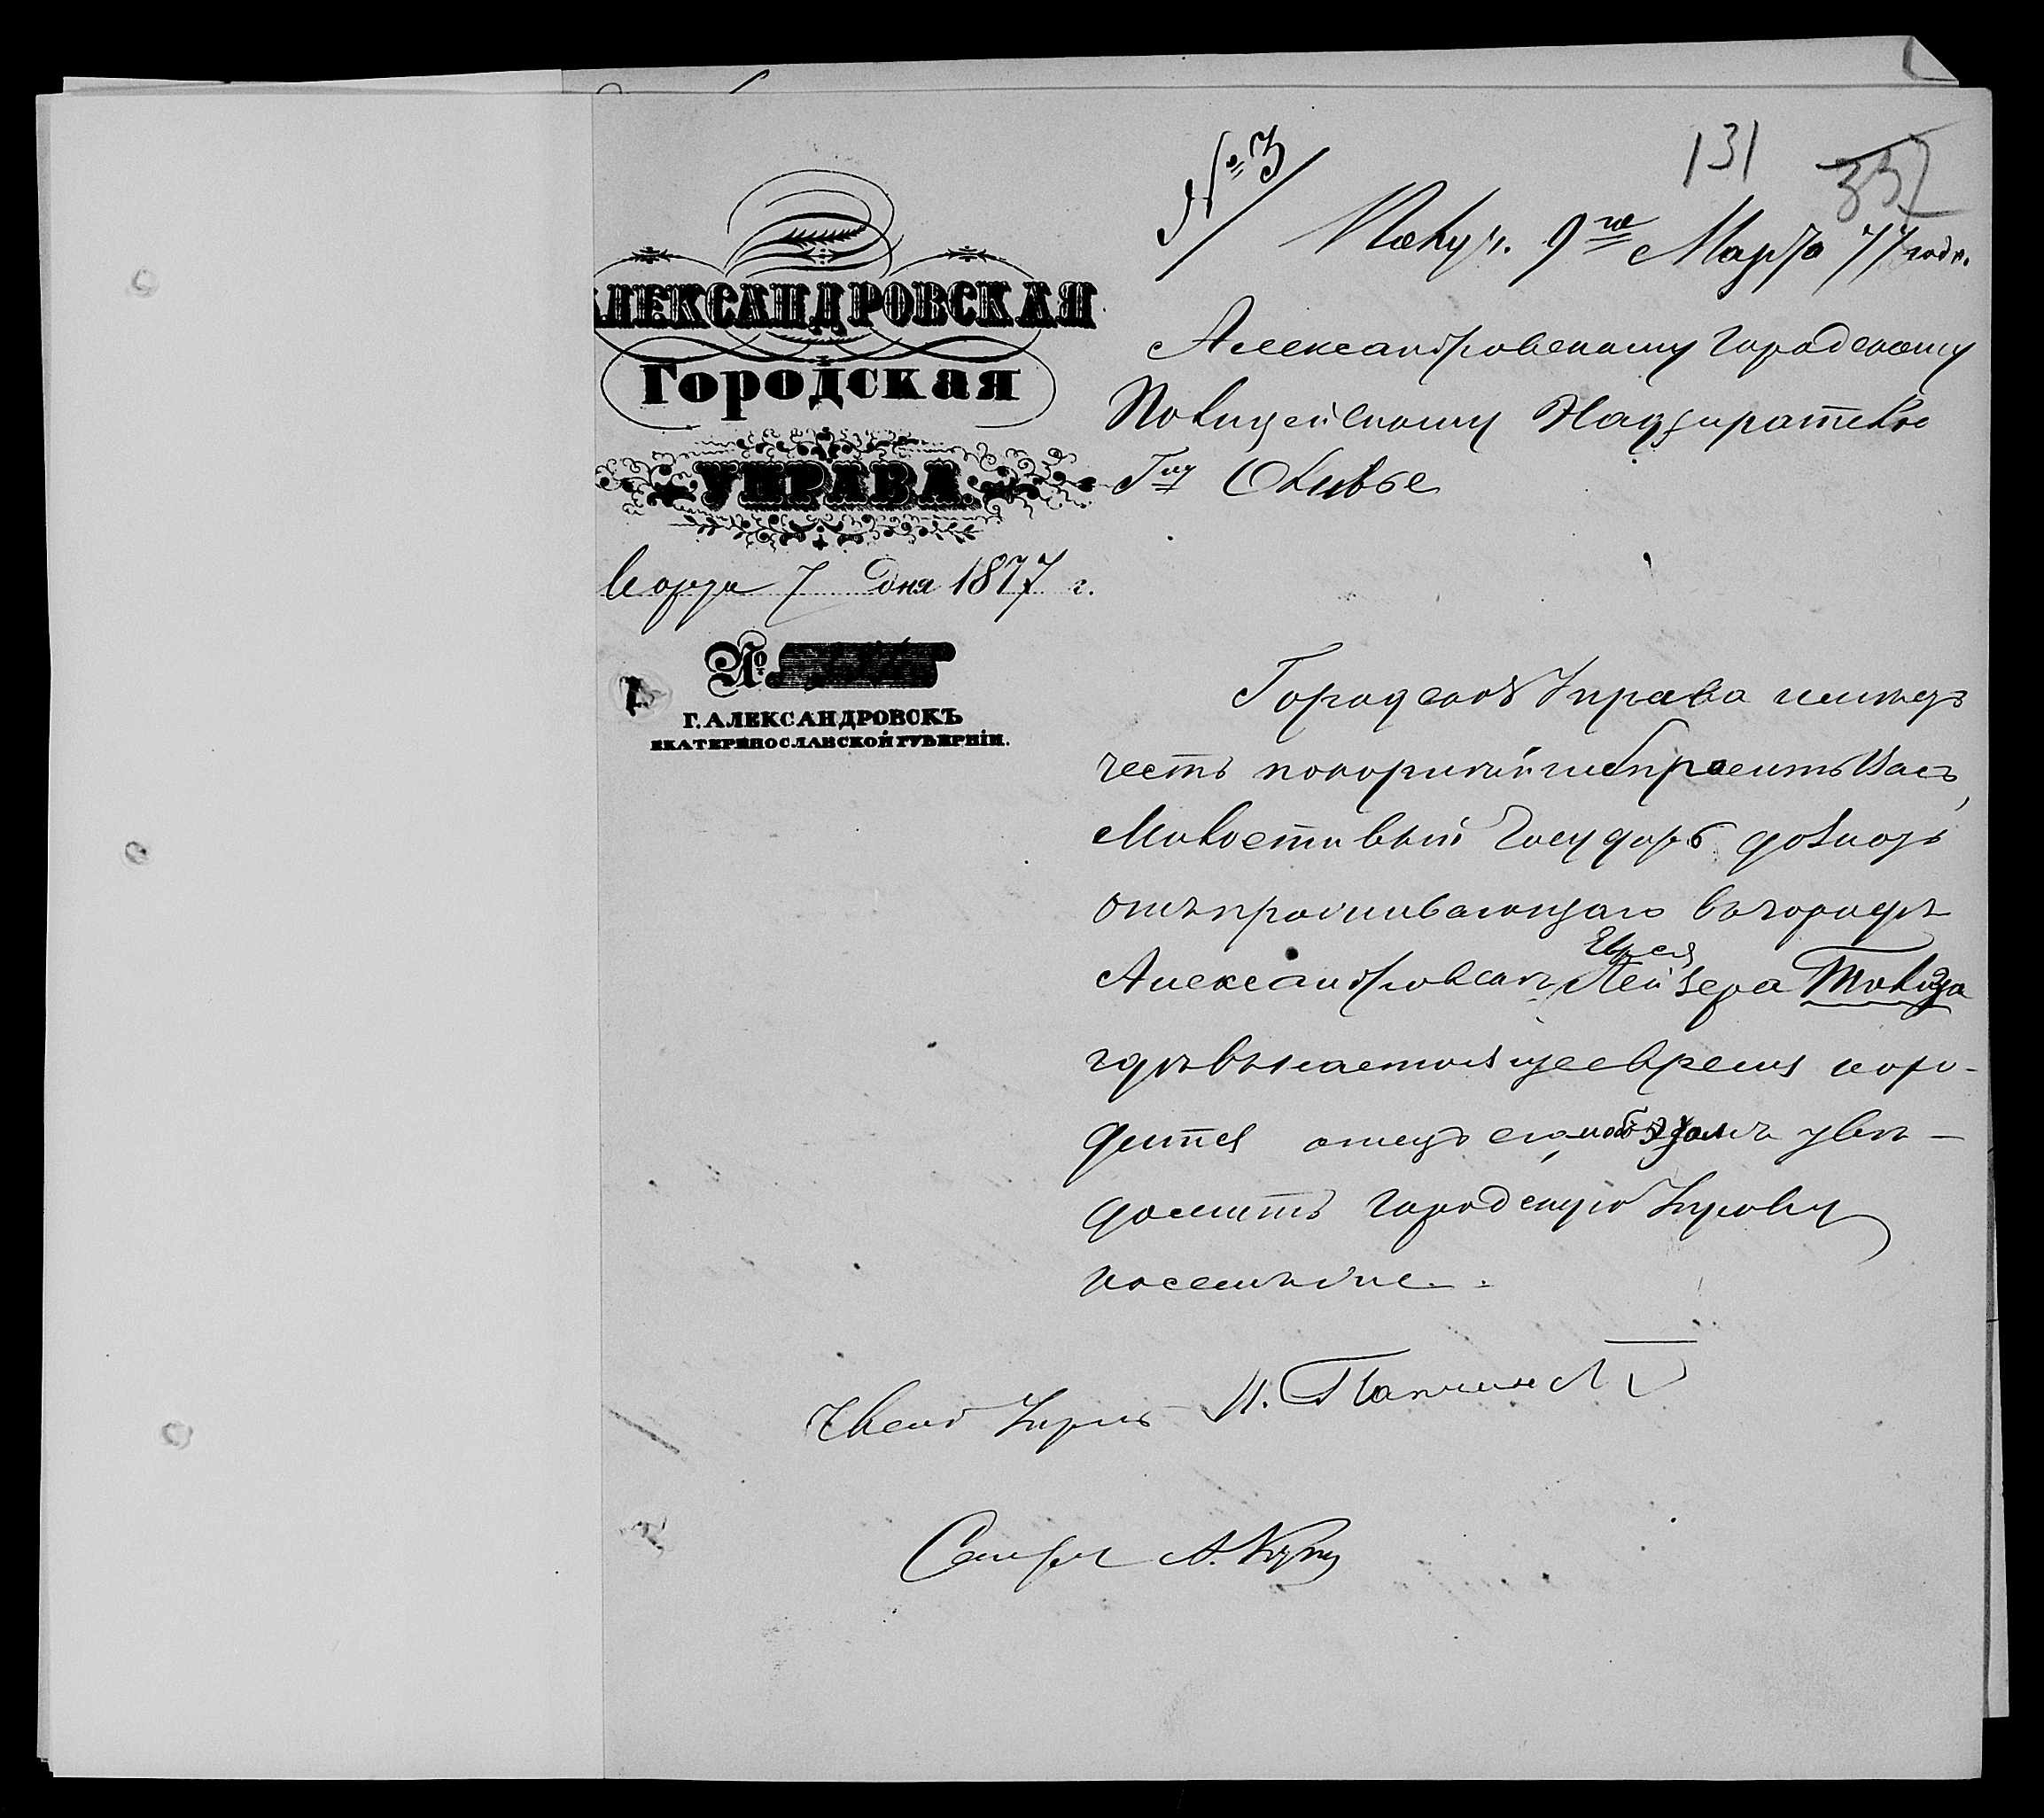 131
332
№ 3
Получ. 9го Марта 77 года.
АЛЕКСАНДРОВСКАЯ
Городская
УПРАВА.
Марта 7 дня 1877 г.
№
Г. АЛЕКСАНДРОВСКЪ
ЕКАТЕРИНОСЛАВСКОЙ ГУБЕРНІИ.
Александровскому Городскому
Полицейскому Надзирателю
Гну Оливье
Городская Управа имѣетъ
честь покорнѣйше просить Васъ,
Милостивый Государь дознать
отъ проживающаго въ городѣ
Александровскѣ Еврея Лейзера
гдѣ въ настоящее время нахо-
дится отецъ его, и увѣ-
домить Городскую Управу
Членъ Управы И.
Секретарь А.